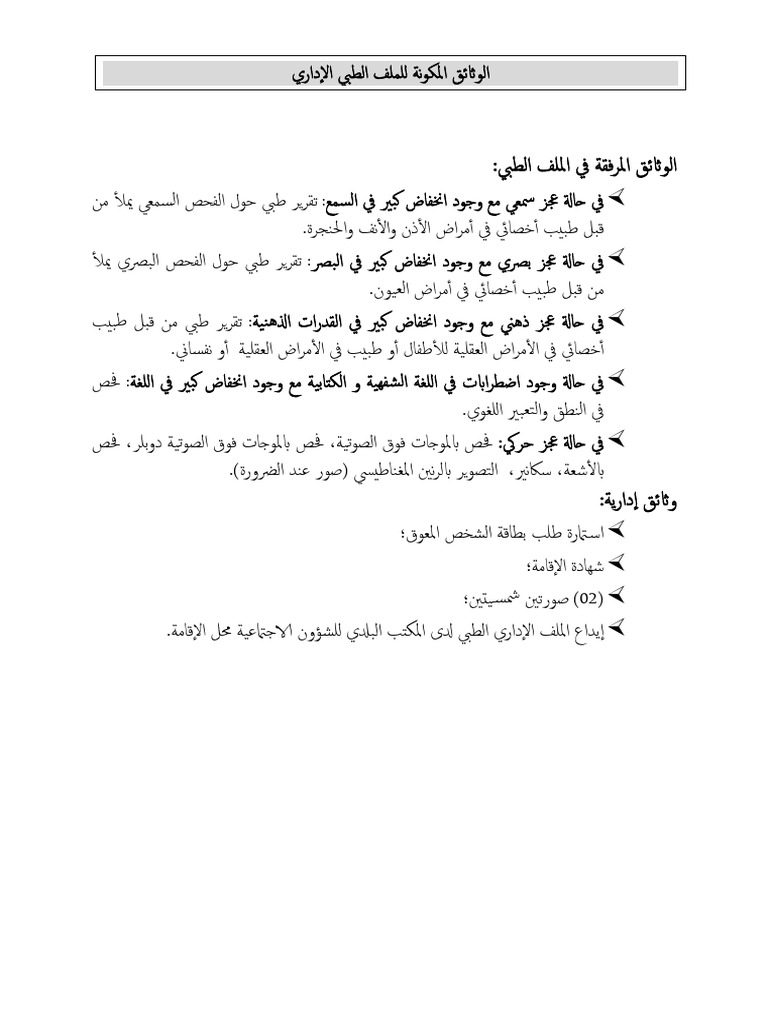 الوثائق المكونة للملف الطبي الإداري
الوثائق المرفقة في الملف الطبي:
في حالة عجز سمعي مع وجود انخفاض كبير في السمع: تقرير طبي حول الفحص السمعي يملأ من
قبل طبيب أخصائي في أمراض الأذن والأنف والحنجرة.
في حالة عجز بصري مع وجود انخفاض كبير في البصر: تقرير طبي حول الفحص البصري يملأ
من قبل طبيب أخصائي في أمراض العيون.
في حالة عجز ذهني مع وجود انخفاض كبير في القدرات الذهنية: تقرير طبي من قبل طبيب
أخصائي في الأمراض العقلية للأطفال أو طبيب في الأمراض العقلية أو نفساني.
في حالة وجود اضطرابات في اللغة الشفهية و الكتابية مع وجود انخفاض كبير في اللغة: فحص
في النطق والتعبير اللغوي.
في حالة عجز حركي: فحص بالموجات فوق الصوتية، فحص بالموجات فوق الصوتية دوبلر، فحص
بالأشعة، سكانير، التصوير بالرنين المغناطيسي (صور عند الضرورة).
وثائق إدارية:
استمارة طلب بطاقة الشخص المعوق؛
شهادة الإقامة؛
(02) صورتين شمسيتين؛
إيداع الملف الإداري الطبي لدى المكتب البلدي للشؤون الاجتماعية محل الإقامة.